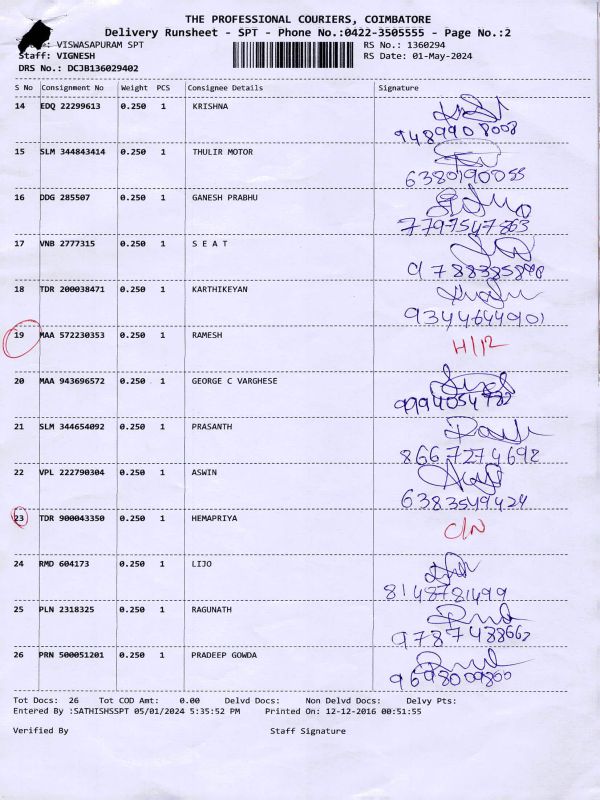 THE PROFESSIONAL COURIERS, COIMBATORE
Delivery Runsheet - SPT - Phone No.:0422-3505555 - Page No.:2
: VISWASAPURAM SPT RS No.: 1360294
Staff: VIGNESH RS Date: 01-May-2024
DRS No.: DCJB136029402
S No Consignment No Weight PCS Consignee Details Signature
14 EDQ 22299613 0.250 1 KRISHNA
9489908008
15 SLM 344843414 0.250 1 THULIR MOTOR
6380190055
16 DDG 285507 0.250 1 GANESH PRABHU
7797547863
17 VNB 2777315 0.250 1 S E A T
18 TDR 200038471 0.250 1 KARTHIKEYAN
9344644901
19 MAA 572230353 0.250 1 RAMESH
20 MAA 943696572 0.250 1 GEORGE C VARGHESE
21 SLM 344654092 0.250 1 PRASANTH
8667274692
22 VPL 222790304 0.250 1 ASWIN
6383549424
23 TDR 900043350 0.250 1 HEMAPRIYA
C/N
24 RMD 604173 0.250 1 LIJO
8148781499
25 PLN 2318325 0.250 1 RAGUNATH
9787488662
26 PRN 500051201 0.250 1 PRADEEP GOWDA
Tot Docs: 26 Tot COD Amt: 0.00 Delvd Docs: Non Delvd Docs: Delvy Pts:
Entered By :SATHISHSSPT 05/01/2024 5:35:52 PM Printed On: 12-12-2016 00:51:55
Verified By Staff Signature